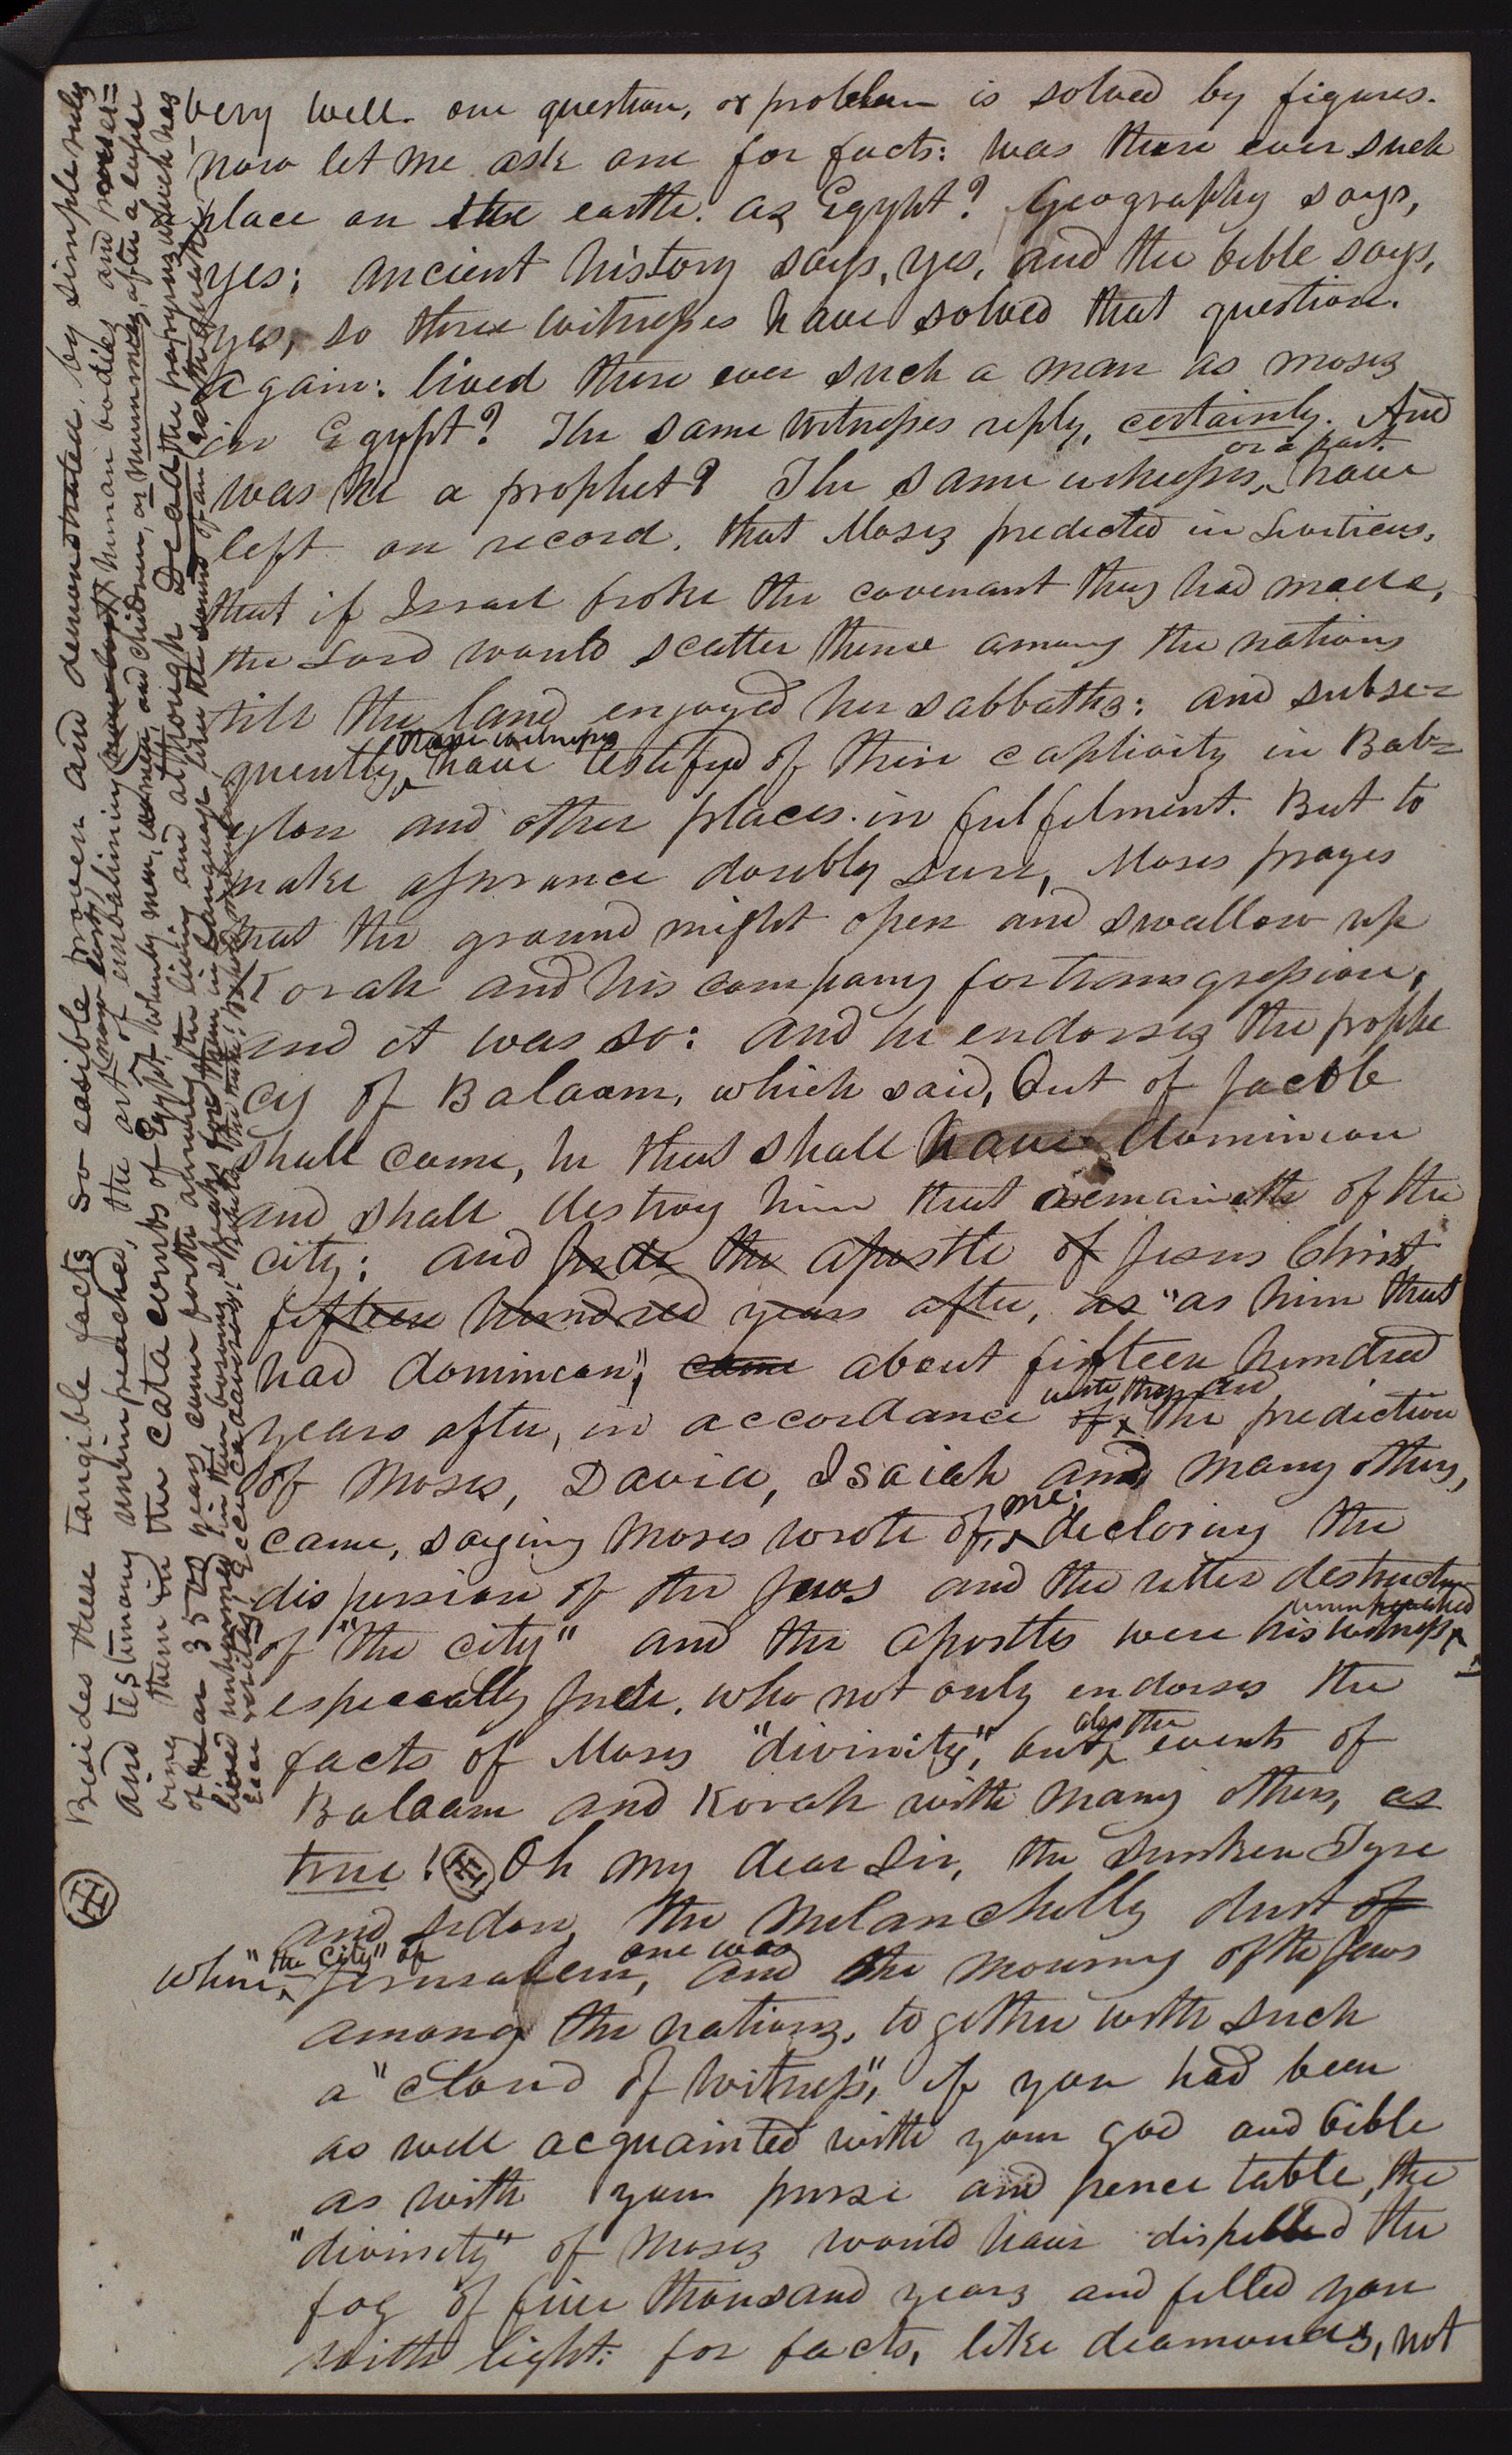 very well. one question, or problem is solved by figures.
now let me ask one for facts: was there ever such
place on the earth. as Egypt? Geography says,
yes; ancient history says, yes, and the bible says,
yes, so three witnesses have solved that question.
again: lived there ever such a man as moses
in Egypt? The same witnesses reply, certainly. And
or a part
was he a prophet? The same witnesses, have
left on record, that Moses predicted in Leviticus,
that if Israel broke the covenant they had made,
the Lord would scatter them among the nations
till the land enjoyed her sabbaths: and subse=
these witnesses
quently, have testifyd of their captivity in Bab=
ylon and other places in fulfilment. But to
make assurance doubly sure, Moses prayes
that the ground might open and swallow up
Korah and his company for transgression,
and it was so: and he endorses the prophe
cy of Balaam, which said, Out of Jacob
shall come, he that shall have dominion
and shall destroy him that remaineth of the
city: and Jude the apostle of Jesus Christ
fifteen hundred years after, as "as him that
had dominion", came about fifteen hundred
with those and
years after, in accordance of the prediction
of Moses, David, Isaiah and many others,
me;
came, saying Moses wrote of, declaring the
dispersion of the Jews and the utter destructn
unimpeached
of "the city" and the apostles were his witness,
especially Jude, who not only endorses the
also the
facts of Moses "divinity", but events of
Balaam and Korah with many others, as
true! Oh my dear Sir, the sunken Tyre
and Sidon, the melancholly dust of
"the city" of one was
where Jerusalem, and the mourning of the Jews
among the nations, together with such
a "cloud of witness", if you had been
as well acquainted with your god and bible
as with your purse and pence table, the
"divinity" of Moses would have dispelled the
fog of five thousand years and filled you
with light: for facts, like diamonds, not
Besides these tangible facts so easible proven and demonstrated, by simple rules
and testimony unimpeached, the art now lost, of embalming human bodies and preser=
ving them in the catacombs of Egypt, whereby men, women, and children, as mummies, after a lapse
of near 3500 years, come forth among the living and although dead the papyrus which has
lived in their bosoms, unharmed, speaks for them in language like the sound of an earthquake